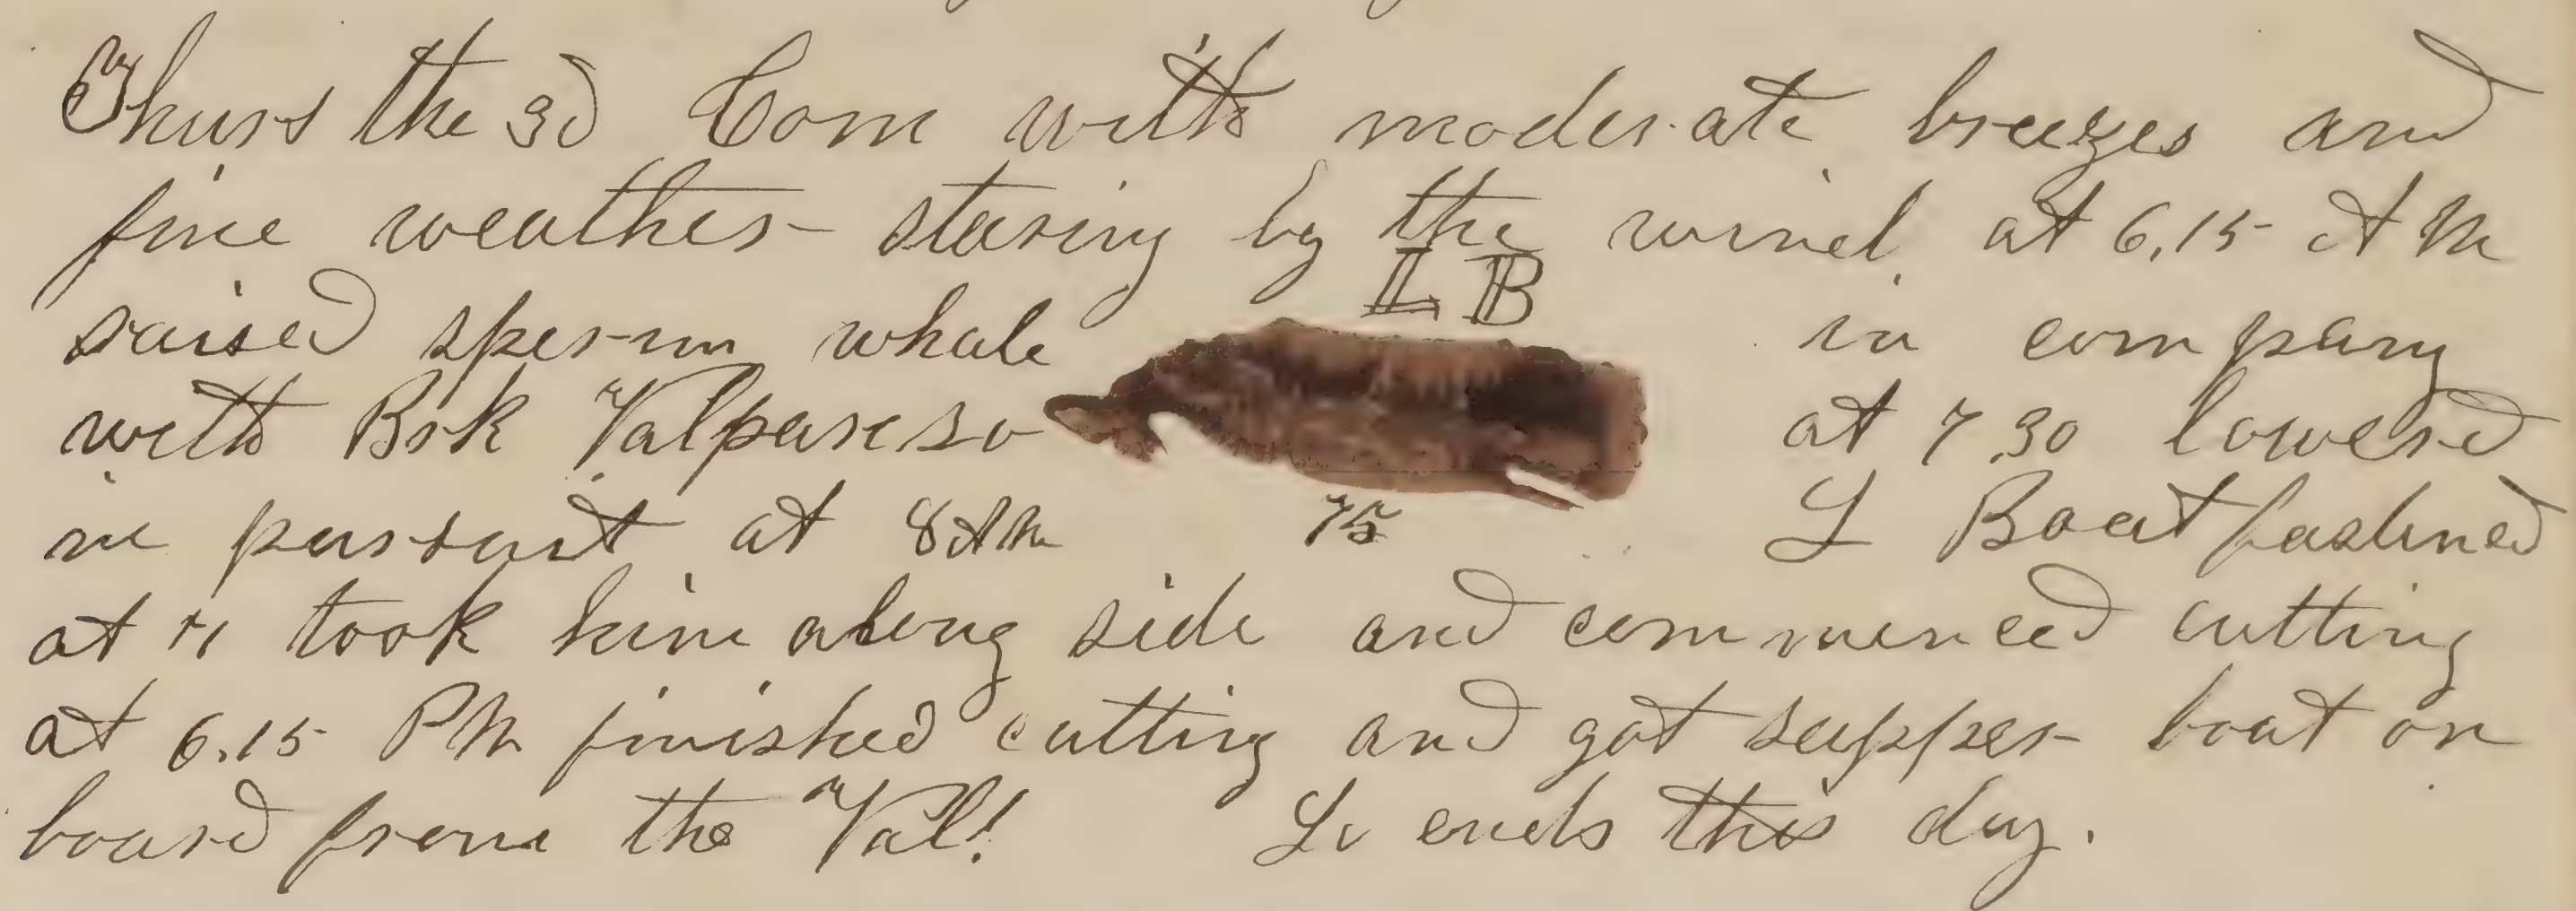 Thurs the 3d Com with moderate breezes and
fine weather stearing by the wind at 6,15 A M
L B
raised sperm whale in company
with Brk Valpareso at 7,30 lowerd
in persuit at 8 AM 75 L Boat fastned
at 11 took him along side and commenced cutting
at 6.15 PM finished cutting and got supper boat on
board from the Val! So ends this day.